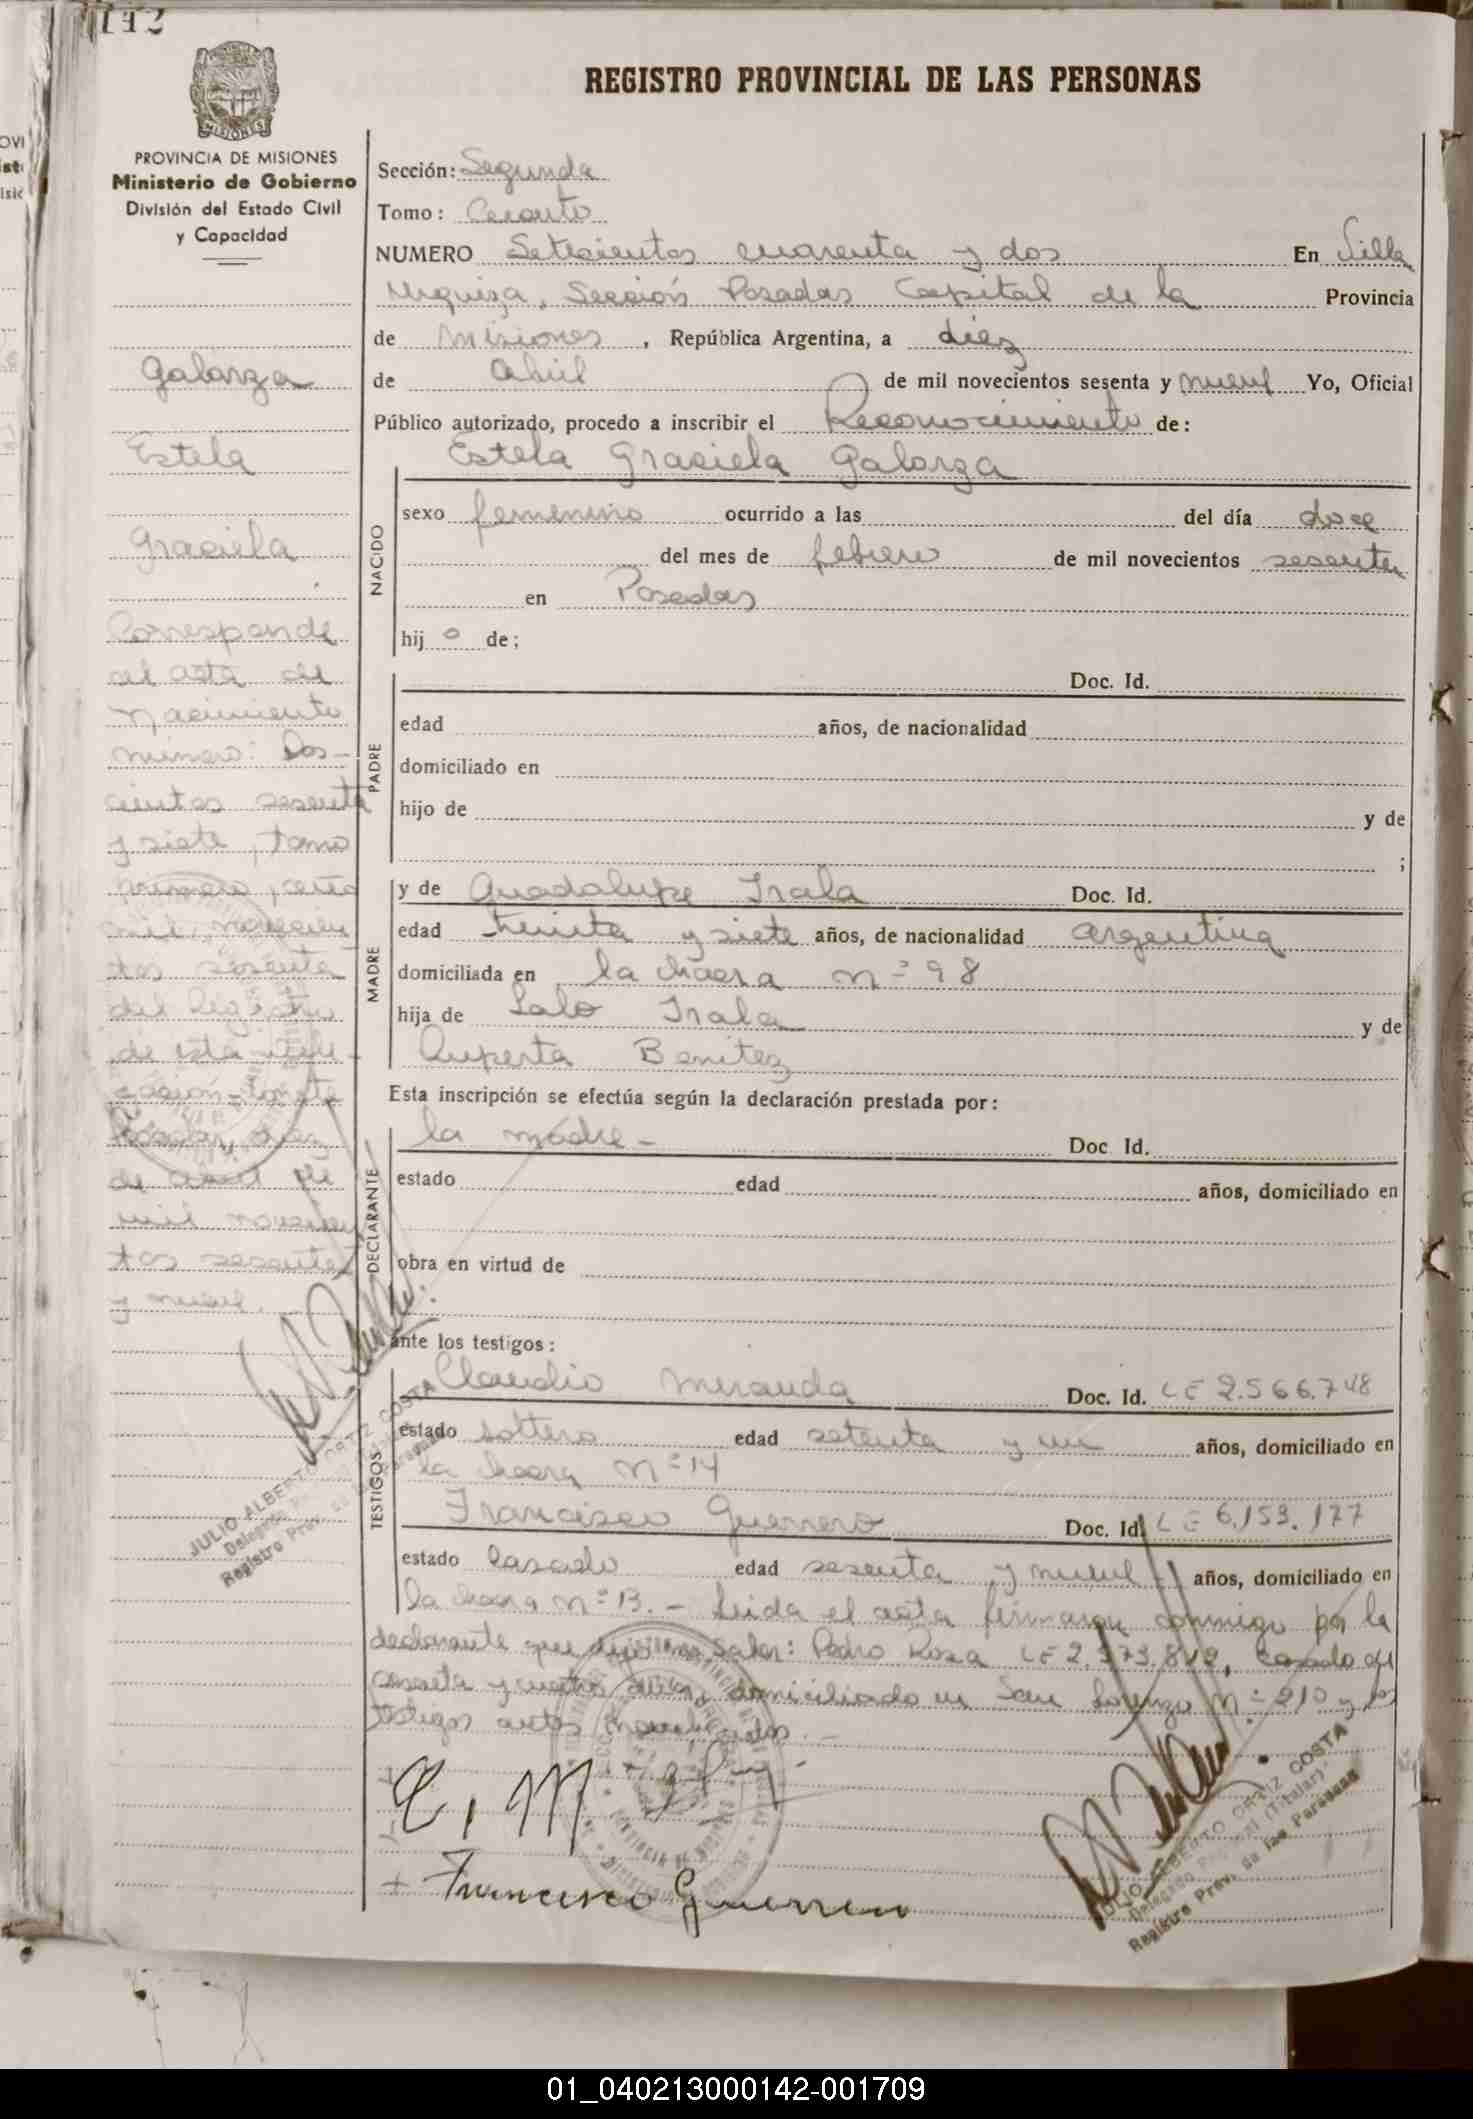 142
REGISTRO PROVINCIAL DE LAS PERSONAS
PROVINCIA DE MISIONES
Ministerio de Gobierno
División del Estado Civil
y Capacidad
Galarza
Estela
Graciela
Corresponde
al acta de
Nacimiento
número: Dos-
cientos sesenta
y siete, tomo
primero, año
mil novecien
tos sesenta
del Registro
de esta
Posadas, diez
de abril de
mil novecien
tos sesenta
y nueve.
JULIO ALBERTO ORTIZ COSTA
Registro Prov.
Sección: Segunda
Tomo: Cuarto
NUMERO Setecientos cuarenta y dos En Villa
Urquiza, Sección Posadas Capital de la Provincia
de Misiones, República Argentina, a diez
de Abril de mil novecientos sesenta y nueve Yo, Oficial
Público autorizado, procedo a inscribir el Reconocimiento de:
Estela Graciela Galarza
NACIDO
sexo femenino ocurrido a las del día doce
del mes de febrero de mil novecientos sesenta
en Posadas
hij o de;
PADRE
Doc. Id.
edad años, de nacionalidad
domiciliado en
hijo de y de
;
MADRE
y de Guadalupe Irala Doc. Id.
edad treinta y siete años, de nacionalidad argentina
domiciliada en la chacra nº 98
hija de Lalo Irala y de
Ruperta Benitez
Esta inscripción se efectúa según la declaración prestada por:
DECLARANTE
la madre - Doc. Id.
estado edad años, domiciliado en
obra en virtud de
ante los testigos:
TESTIGOS
Claudio Miranda Doc. Id. LE 2.566.748
estado soltero edad setenta y un años, domiciliado en
la chacra Nº 14
Francisco Guerrero Doc. Id. LE 6.153.177
estado casado edad sesenta y nueve años, domiciliado en
la chacra nº 13. - Leida el acta firman conmigo por la
declarante que dijo no saber: Pedro Rosa LE casado de
y cuatro años, domiciliado en San Lorenzo Nº 210 y los
testigos antes
C. M
Francisco Guerrero
JULIO ALBERTO ORTIZ COSTA
Delegado Regional (Titular)
Registro Prov. de las Personas
01_040213000142-001709